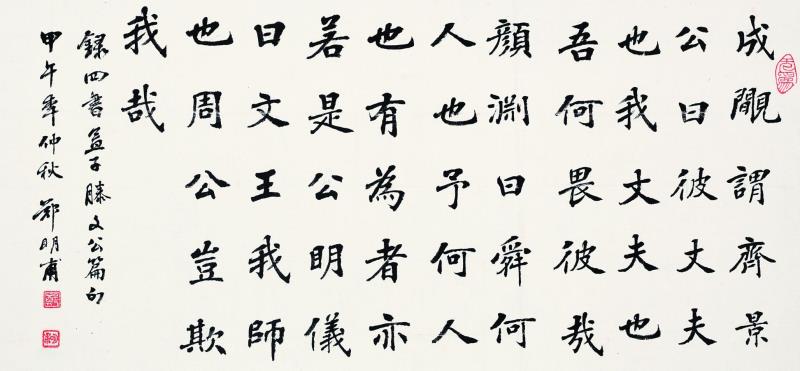 成覸謂齊景
公曰彼丈夫
也我丈夫也
吾何畏彼哉
顏淵曰舜何
人也予何人
也有為者亦
若是公明儀
曰文王我師
也周公豈欺
我哉
錄四書孟子滕文公篇句
甲午年仲秋 鄭明甫